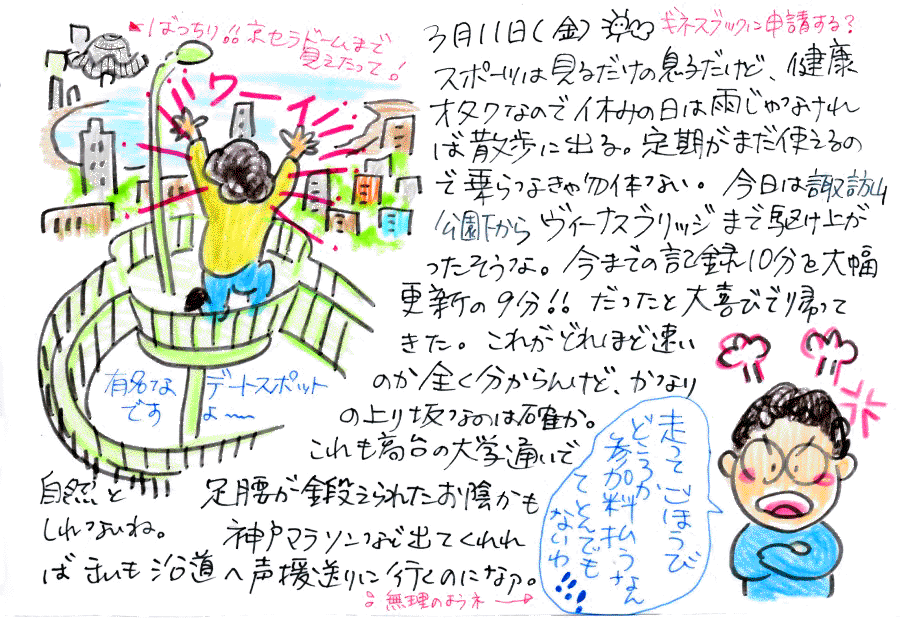 ばっちり!!京セラドームまで
見えたって!
ワーイ
3月11日(金)
ギネスブックに申請する?
スポーツは見るだけの息子だけど、健康
オタクなので休みの日は雨じゃなけれ
ば散歩に出る。定期がまだ使えるの
で乗らなきゃ勿体ない。今日は諏訪山
公園下からヴィーナスブリッジまで駆け上が
ったそうな。今までの記録10分を大幅
更新の9分!!だったと大喜びで帰って
きた。これがどれほど速い
のか全く分からんけど、かなり
の上り坂なのは確か。
これも高台の大学通いで
自然と足腰が鍛えられたお陰かも
しれないね。神戸マラソンなど出てくれれ
ば
も沿道へ声援送りに行くのになァ。
無理のようネ→
有名なデートスポット
ですよ〜
走ってごほうび
どころか
参加料払うなん
てとんでも
ないわ!!!